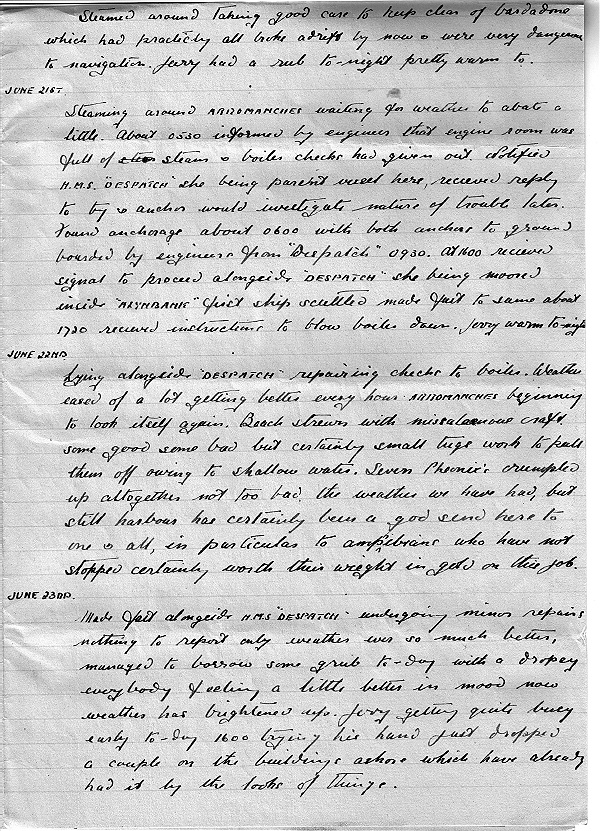 Steamed around taking good care to keep clear of bardadons
which had practicly all broke adrift by now & were very dangerous
to navigation. Jerry had a rub to-night pretty warm to.
JUNE 21ST
Steaming around ARROMANCHES waiting for weather to abate a
little. About 0530 informed by engineers that engine room was
full of steam & boiler checks had given out. Notified
H.M.S. "DESPATCH" she being parent vessel here, recieved reply
to try & anchor would investigate nature of trouble later.
Found anchorage about 0600 with both anchors to ground
boarded by engineers from "Despatch" 0930. At 1600 recieved
signal to proceed alongside "DESPATCH" she being moored
inside "ALYNBANK" first ship scuttled made fast to same about
1720 recieved instructions to blow boiler down. Jerry warm to-night
JUNE 22ND
Lying alongside "DESPATCH" repairing checks to boiler. Weather
eased of a lot getting better every hour ARROMANCHES beginning
to look itself again. Beach strewn with craft.
some good some bad but certainly small tugs work to pull
them off owing to shallow water. Seven Pheonix's crumpled
up altogether not too bad, the weather we have had, but
still harbour has certainly been a god send here to
one & all, in particular to who have not
stopped certainly worth their weight in gold on this job.
JUNE 23RD.
Made fast alongside H.M.S "DESPATCH" undergoing minor repairs
nothing to report only weather was so much better,
managed to borrow some grub to-day with a
everybody feeling a little better in mood now
weather has brightened up. Jerry getting quite busy
early to-day 1600 trying his hand just dropped
a couple on the buildings ashore which have already
had it by the looks of things.